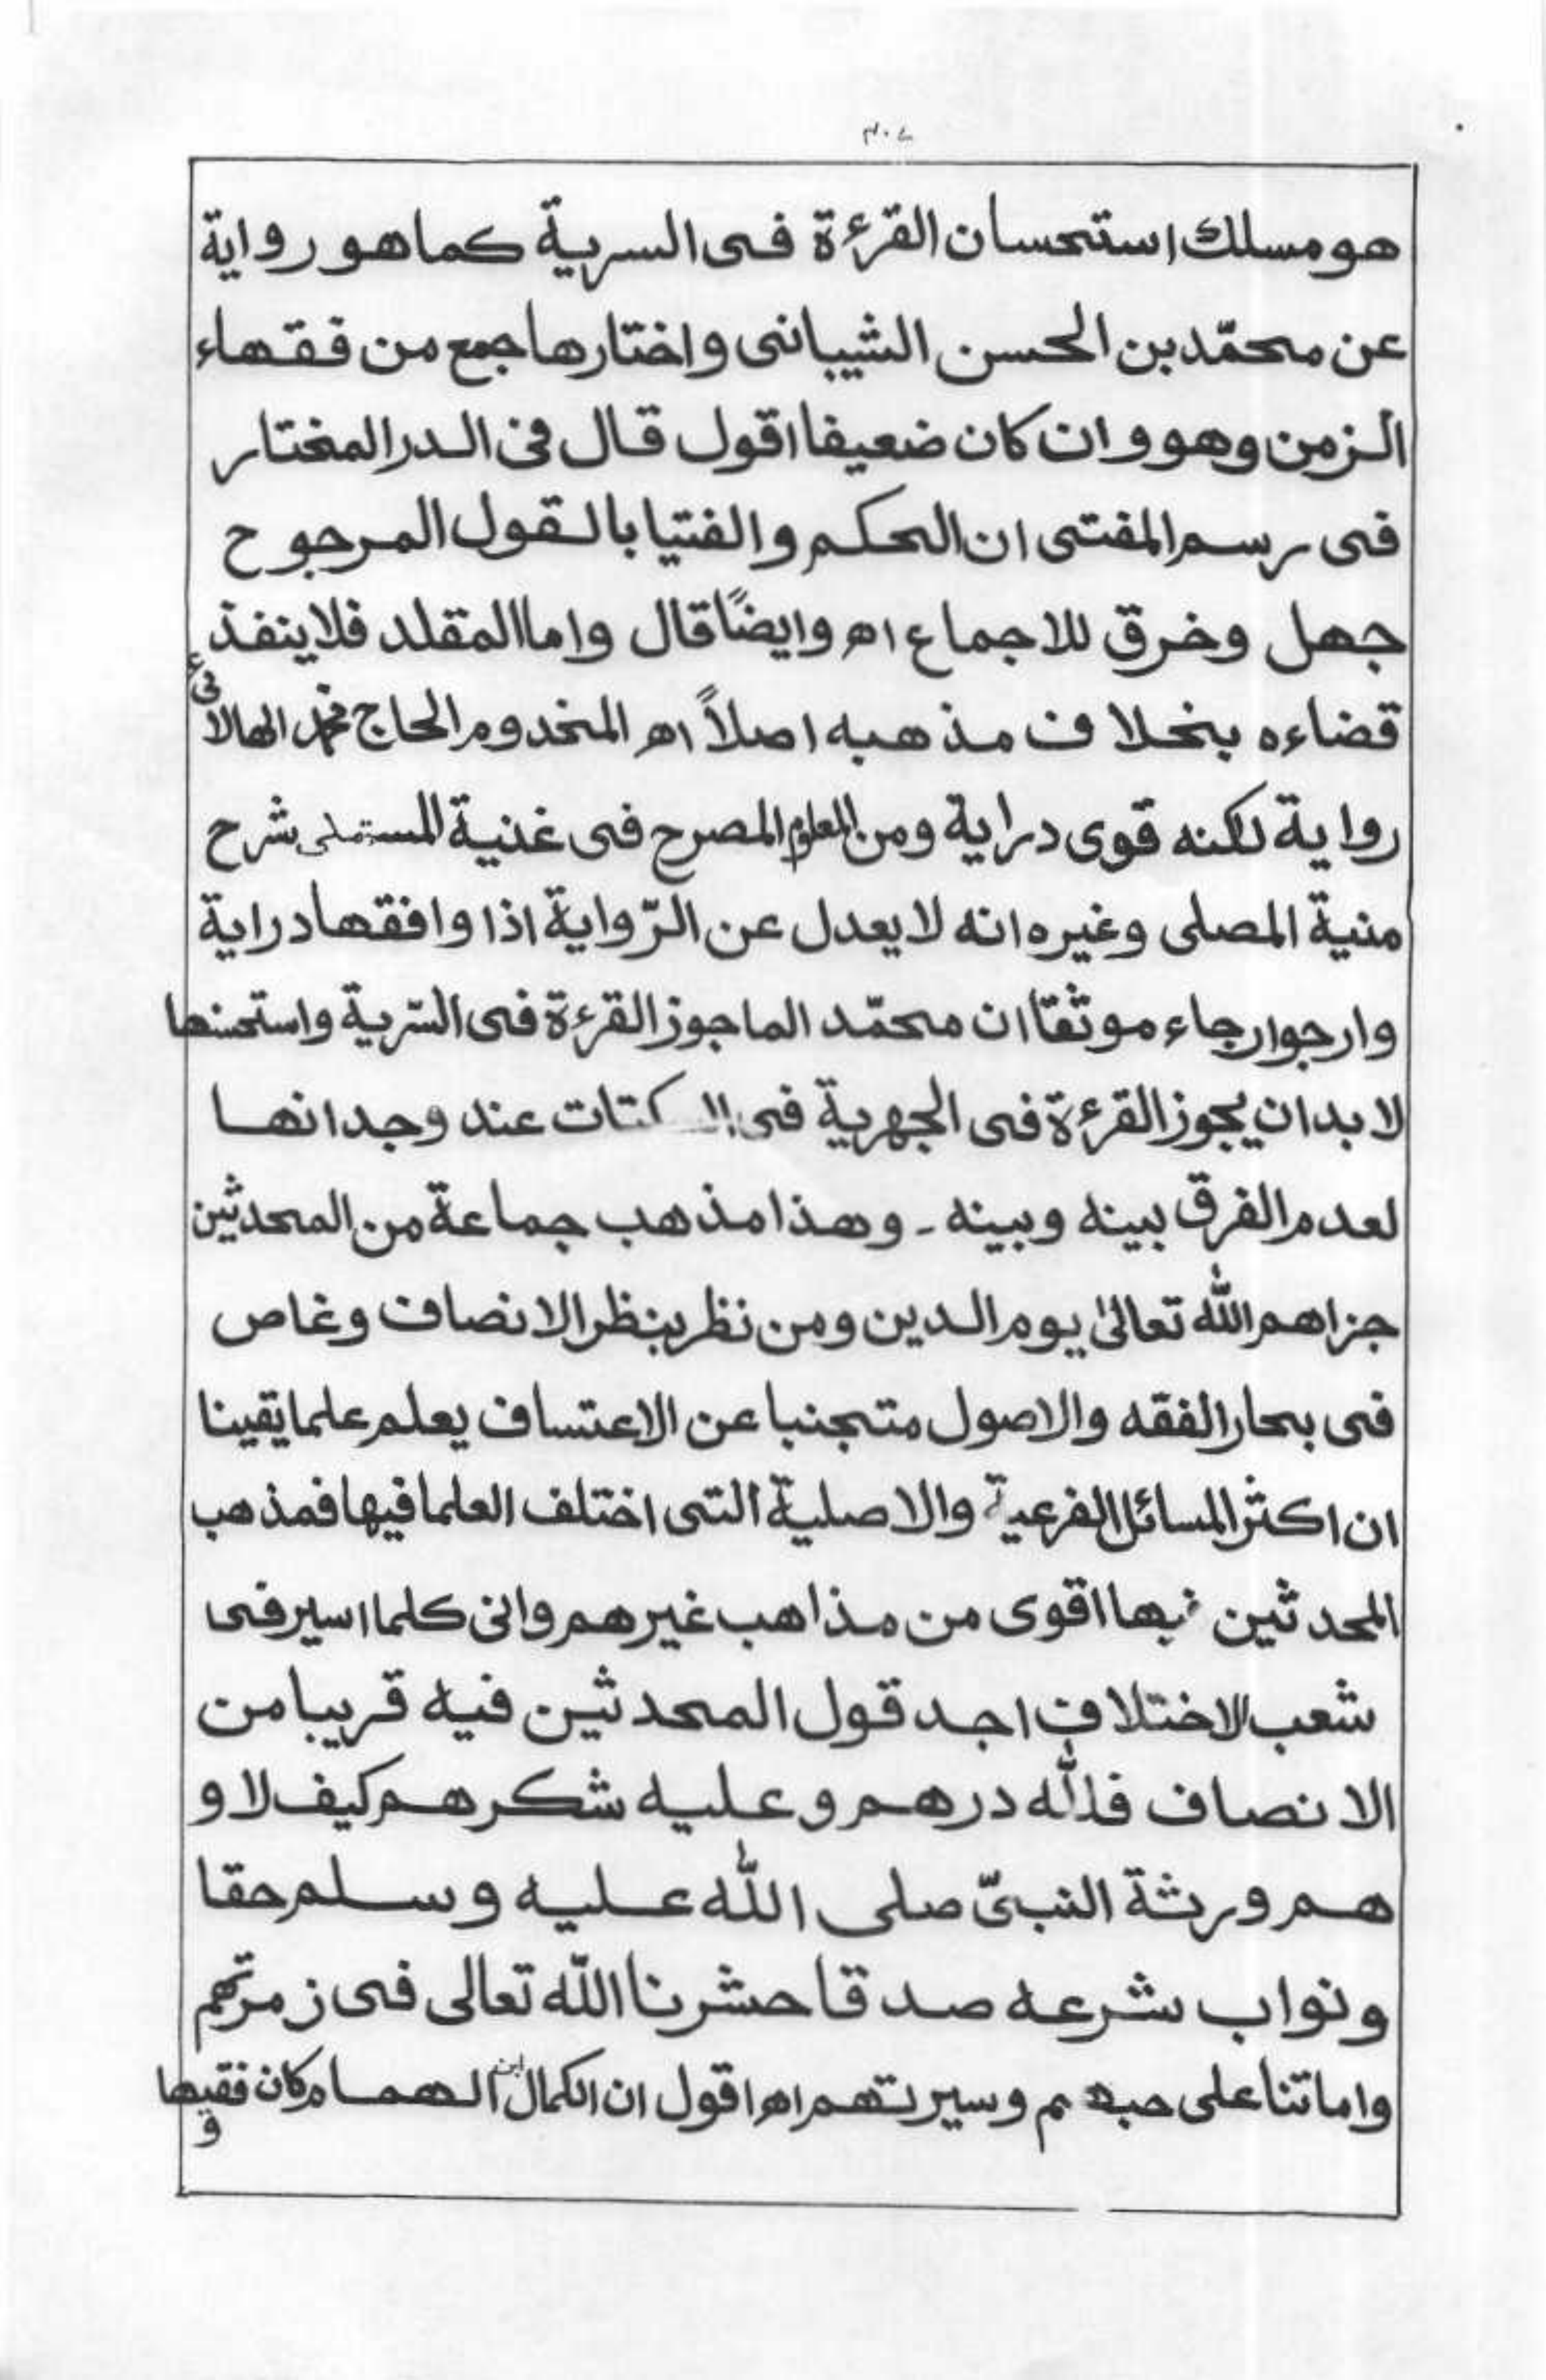 ٣٠٧
هو مسلك استحسان القرءة فى السرية كما هو رواية
عن محمّد بن الحسن الشيبانى واختارها جمع من فقهاء
الزمن وهو وان كان ضعيفا اقول قال فى الدر المختار
فى رسم المفتى ان الحكم والفتيا بالقول المرجوح
جهل وخرق للاجماع اھ وايضًا قال واما المقلد فلا ينفذ
قضاءه بخلاف مذهبه اصلاً اھ المخدوم الحاج محمد الهالائى
رواية لكنه قوى دراية ومن المعلوم المصرح فى غنية المستملى شرح
منية المصلى وغيره انه لا يعدل عن الرّواية اذا وافقها دراية
وارجوا رجاء موثقا ان محمّد الما جوز القرءة فى السّرية واستحسنها
لا بد ان يجوز القرءة فى الجهرية فى السكتات عند وجدانها
لعدم الفرق بينه وبينه ـ وهذا مذهب جماعة من المحدثين
جزاهم الله تعالىٰ يوم الدين ومن نظر بنظر الانصاف وغاص
فى بحار الفقه والاصول متجنبا عن الاعتساف يعلم علما يقينا
ان اكثر المسائل الفرعية والاصلية التى اختلف العلما فيها فمذهب
المحدثين فيها اقوى من مذاهب غيرهم وانى كلما اسير فى
شعب الاختلاف اجد قول المحدثين فيه قريبا من
الانصاف فلله درهم وعليه شكرهم كيف لا و
هم ورثة النبىّ صلى الله عليه وسلم حقا
ونواب شرعه صدقا حشرنا الله تعالى فى زمرتهم
واماتنا على حبهم وسيرتهم اھ اقول ان الكمال ابن الهمام كان فقيها
و